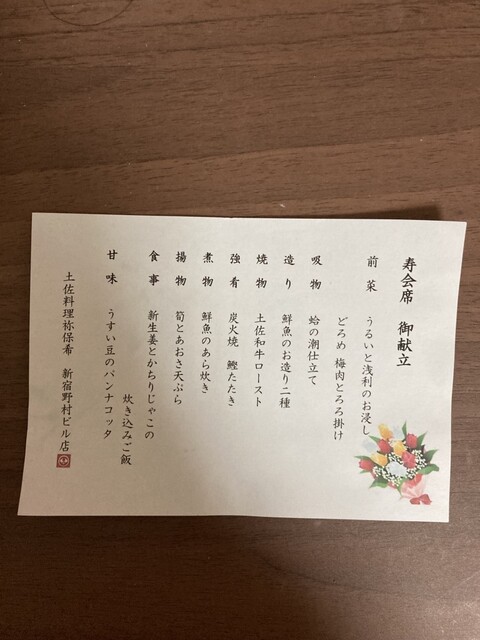 寿会席 御献立
前菜 うるいと浅利のお浸し
どろめ 梅肉とろろ掛け
吸物 蛤の潮仕立て
造り 鮮魚のお造り二種
焼物 土佐和牛ロースト
強肴 炭火焼 鰹たたき
煮物 鮮魚のあら炊き
揚物 筍とあおさ天ぷら
食事 新生姜とかちりじゃこの
炊き込みご飯
甘味 うすい豆のパンナコッタ
土佐料理祢保希 新宿野村ビル店